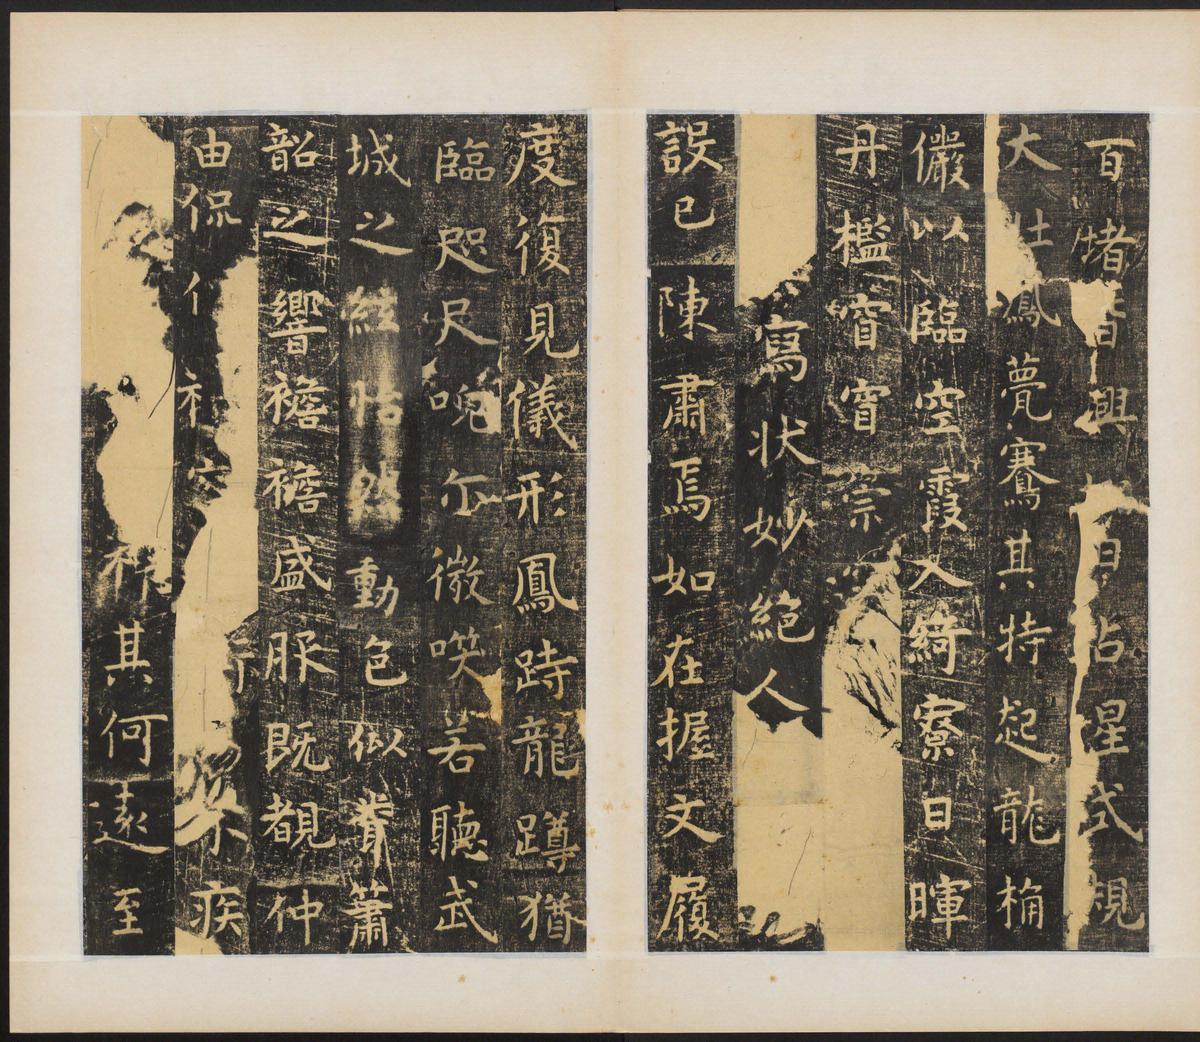 百堵皆興日占星式規
大壯鳳甍騫其特起龍桷
儼以臨空霞入綺寮日暉
丹檻窅窅崇
寫狀妙絕人
設已陳肅焉如在握文履
度復見儀形鳳跱龍蹲猶
臨咫尺尒微咲若聽武
城之絃怡然動色似簫
韶之響襜襜盛服既覩仲
由侃侃礼容不疾
神其何遠至